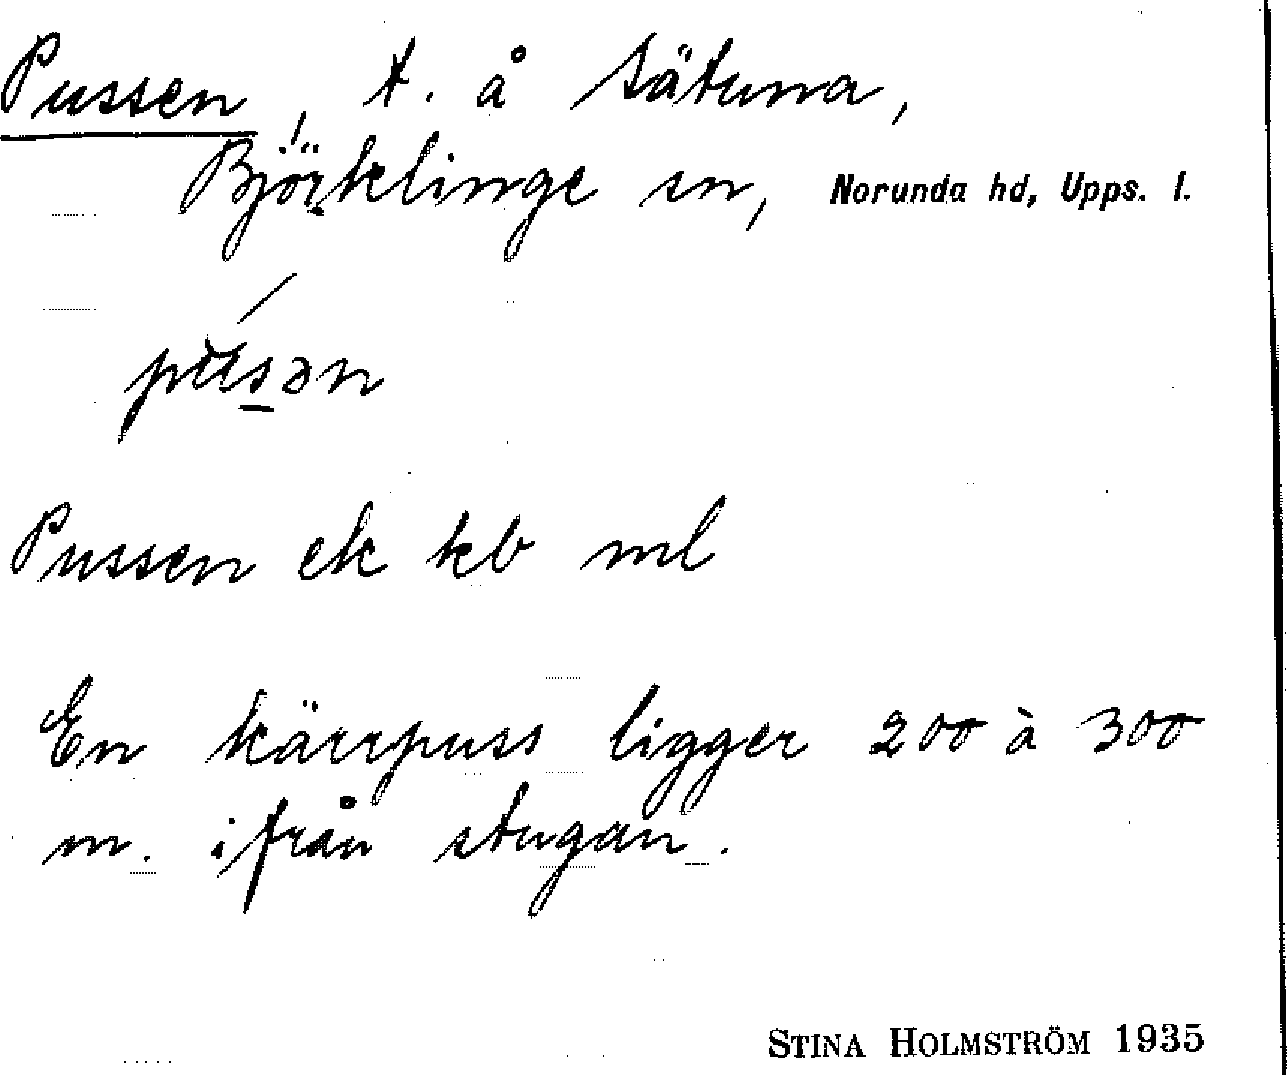 Pussen, t. å Sätuna,
Björklinge sn, Norunda hd, Upps. l.
pùsən
Pussen ek kb ml
En kärrpuss ligger 200 à 300
m. ifrån stugan.
STINA HOLMSTRÖM 1935